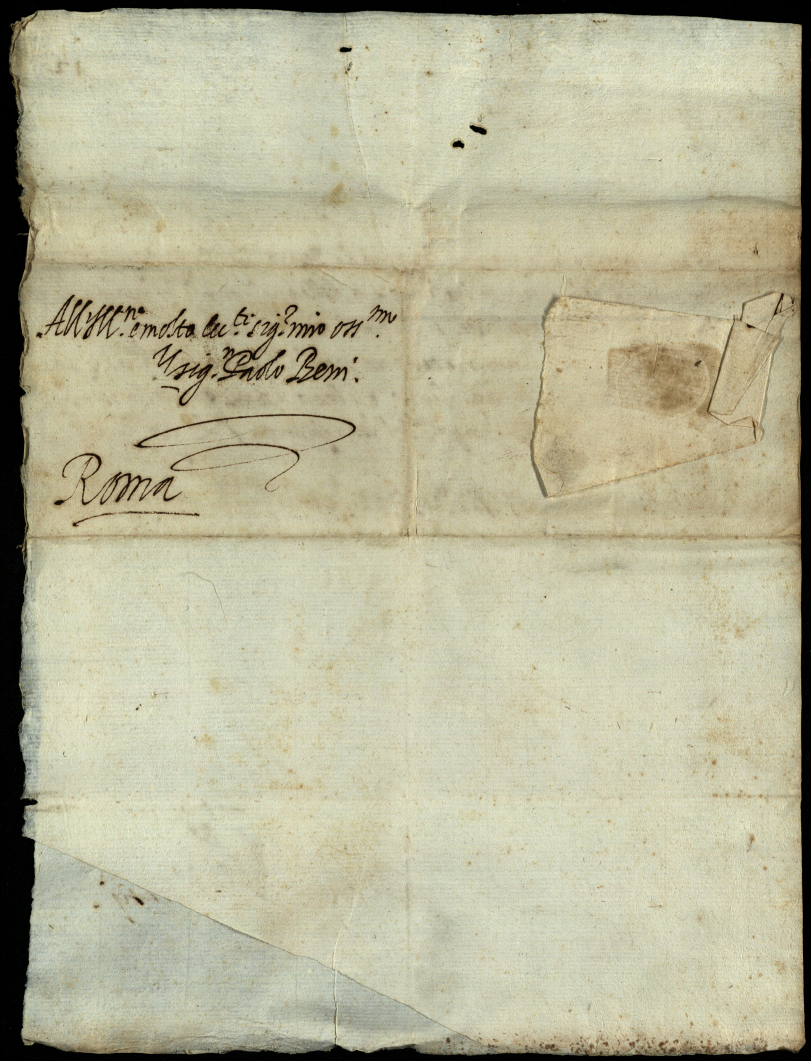 All'Ill.re e molto ecc.te sig.r mio oss.mo
Il sig.r Paolo Beni.
Roma